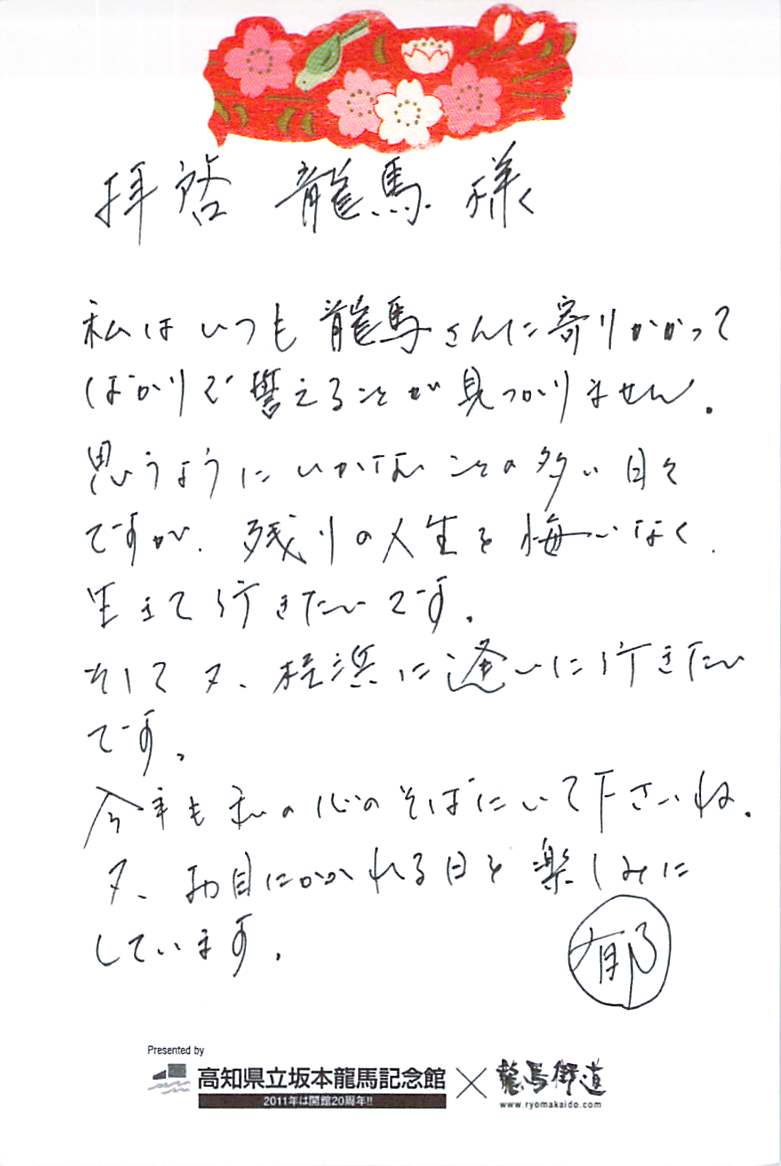 拝啓 龍馬 様
私はいつも龍馬さんに寄りかかって
ばかりで誓えることが見つかりません。
思うようにいかないことの多い日々
ですが、残りの人生を悔いなく
生きて行きたいです。
そして又、桂浜に逢いに行きたい
です。
今年も私の心のそばにいて下さいね。
又、お目にかかれる日を楽しみに
しています。
郁
Presented by
高知県立坂本龍馬記念館×龍馬街道
2011年は開館20周年!!
www.ryomakaido.com